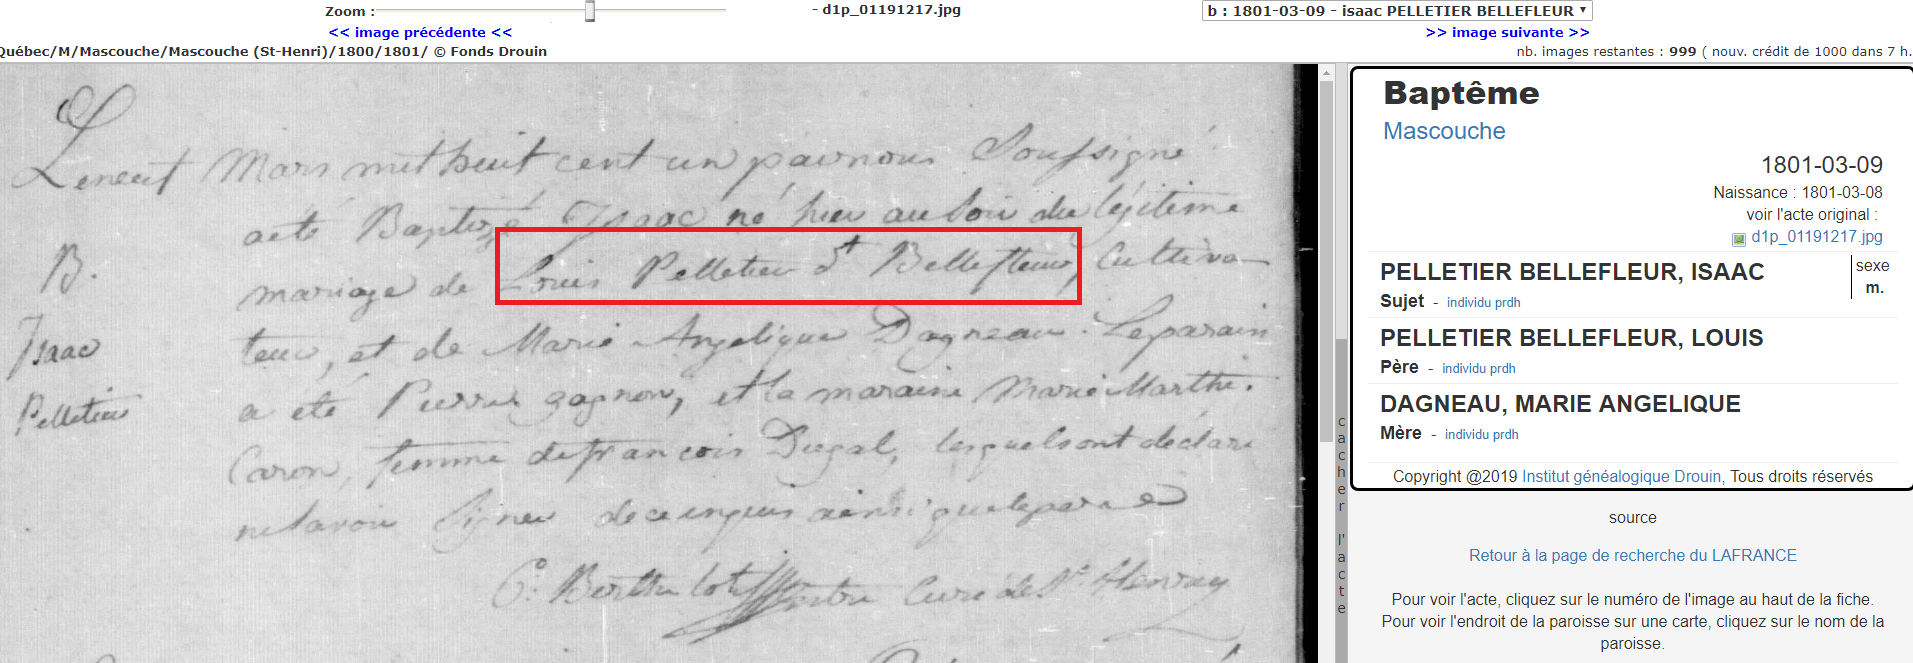 Zoom :
- d1p_01191217.jpg
b : 1801-03-09 - isaac PELLETIER BELLEFLEUR
<< image précédente <<
>> image suivante >>
Québec/M/Mascouche/Mascouche (St-Henri)/1800/1801/ © Fonds Drouin
nb. images restantes : 999 ( nouv. crédit de 1000 dans 7 h.
Le neuf Mars mil huit cent un par nous Soussigné
B.
a été Baptizé Isaac né hier au soir du légitime
mariage de Louis Pelletier dt Bellefleur, Cultiva-
Isaac
Pelletier
teur, et de Marie Angelique Dagneau. Le parain
a été Pierre gagnon, et la maraine Marie Marthe
Caron, femme de francois Dugal, lesquels ont déclaré
ne savoir Signer de ce enquis ainsi que le pere
C. Berthelot Ptre Curé de St Henry
cacher l'acte
Baptême
Mascouche
1801-03-09
Naissance : 1801-03-08
voir l'acte original :
d1p_01191217.jpg
PELLETIER BELLEFLEUR, ISAAC
sexe
m.
Sujet - individu prdh
PELLETIER BELLEFLEUR, LOUIS
Père - individu prdh
DAGNEAU, MARIE ANGELIQUE
Mère - individu prdh
Copyright @2019 Institut généalogique Drouin, Tous droits réservés
source
Retour à la page de recherche du LAFRANCE
Pour voir l'acte, cliquez sur le numéro de l'image au haut de la fiche.
Pour voir l'endroit de la paroisse sur une carte, cliquez sur le nom de la
paroisse.